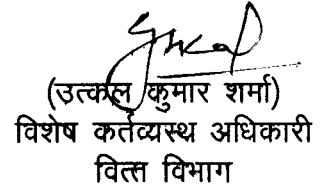 (उत्कल कुमार शर्मा)
विशेष कर्तव्यस्थ अधिकारी
वित्त विभाग